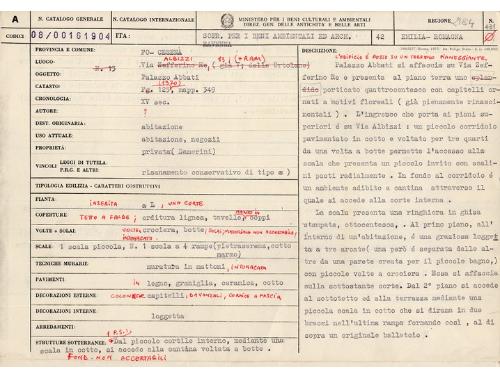 A
N. CATALOGO GENERALE
N. CATALOGO INTERNAZIONALE
MINISTERO PER I BENI CULTURALI E AMBIENTALI
DIREZ. GEN. DELLE ANTICHITÀ E BELLE ARTI
REGIONE
N.
CODICI
08/00161904
ITA:
SOPR. PER I BENI AMBIENTALI ED ARCH.
RAVENNA
42
EMILIA-ROMAGNA
PROVINCIA E COMUNE:
FO- CESENA
LUOGO:
ALBIZZI
Via Zefferino Re, (già V. delle Ortolane)
OGGETTO:
Palazzo Abbati
CATASTO:
(1970)
Fg. 125, mapp. 349
CRONOLOGIA:
XV sec.
AUTORE:
?
DEST. ORIGINARIA:
abitazione
USO ATTUALE:
abitazione, negozi
PROPRIETÀ:
privata
VINCOLI
LEGGI DI TUTELA:
P.R.G. E ALTRI:
risanamento conservativo di tipo
TIPOLOGIA EDILIZIA - CARATTERI COSTRUTTIVI
PIANTA:
INSERITA a L, UNA CORTE
COPERTURE:
TETTO A FALDE; orditura lignea, tavelle, coppi
VOLTE o SOLAI:
crociera, botte;
SCALE:
1 scala piccola, N. 1 scala a 4 rampe (pietraserena, cotto
marmo)
TECNICHE MURARIE:
muratura in mattoni, INTONACATA
PAVIMENTI:
in legno, ceramica, cotto
DECORAZIONI ESTERNE:
capitelli, DAVANZALI, CORNICE A FASCIA
DECORAZIONI INTERNE:
loggetta
ARREDAMENTI:
STRUTTURE SOTTERRANEE:
(P.S.I.)
Dal piccolo cortile interno, mediante una
scala in cotto, si accede alla cantina voltata a botte.
FOND. NON ACCERTABILI
DESCRIZIONE:
L'EDIFICIO È POSTO SU UN TERRENO PIANEGGIANTE.
Palazzo Abbati si affaccia su Via Zef-
ferino Re e presenta al piano terra uno splen-
dido porticato quattrocentesco con capitelli
ornati a motivi floreali (già pienamente rinasci-
mentali). L'ingresso che porta ai piani su-
periori è su Via Albizzi: un piccolo corridoio
pavimentato in cotto e voltato per tre quarti
da una volta a botte permette l'accesso alla
scala che presenta un piccolo invito con scali-
ni posti radialmente. In fondo al corridoio è
un ambiente adibito a cantina attraverso il
quale si accede al cortile interno.
La scala presenta una ringhiera in ghisa
stampata, ottocentesca. Al primo piano, all'in
terno di un'abitazione, è una graziosa loggetta
a tre arcate (una però è separata delle al-
tre da una parete creata per il piccolo bagno),
con piccole volte a crociera. Essa si affaccia
sulla sottostante corte. Dal 2° piano si accede
al sottotetto ed alla terrazza mediante una
piccola scala in cotto che si dirama in due
bracci nell'ultima rampa formando così, al di
sopra un originale ballatoio.